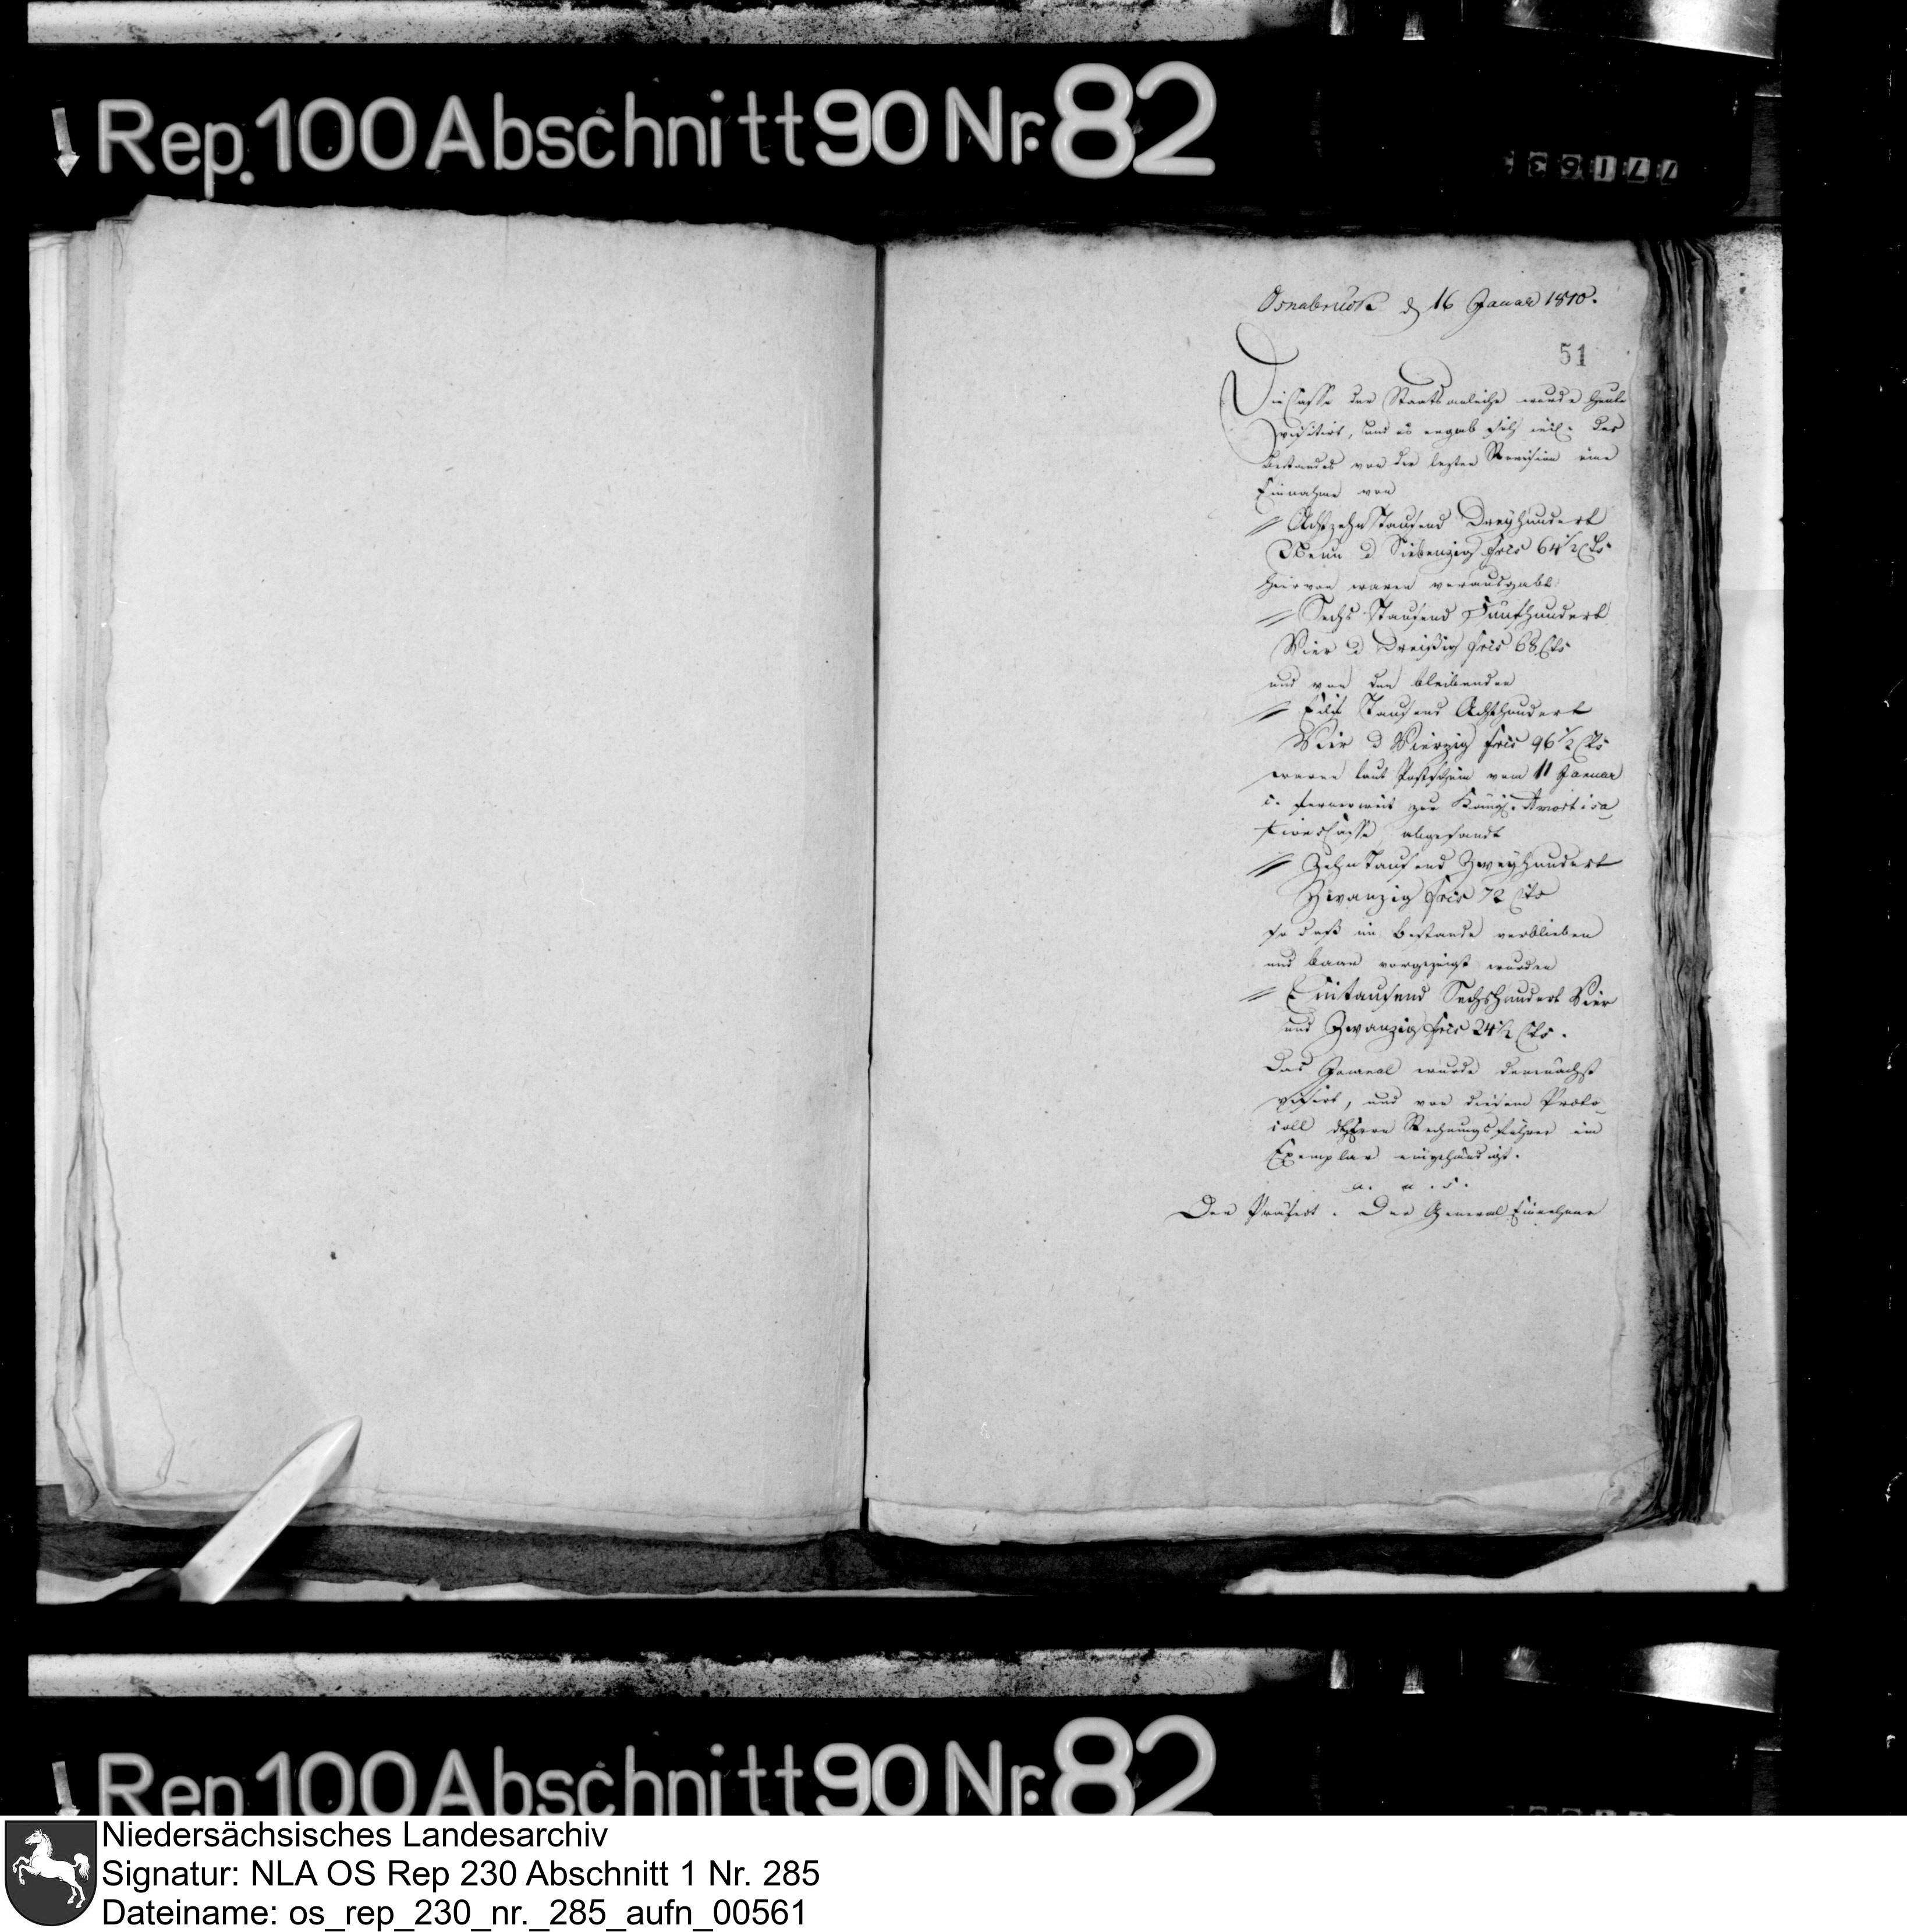 Rep. 100 Abschnitt 90 Nr. 82
Osnabrück d 16 Januar 1810.
51
Die Casse der Staatsanleihe wurde heute
visitirt, und es ergab sich incl. des
Bestandes von der lezten Revision eine
Einnahme von
// Achtzehn Tausend Dreyhundert
Neun u Siebenzig frcs 64 1/2 Cts
hiervon waren verausgabt:
// Sechs Tausend Fünfhundert
Vier u Dreißig frcs 68 Cts
und von den bleibenden
// Eilf Tausend Achthundert
Vier u Vierzig frcs 96 1/2 Cts
waren laut Postschein vom 11 Januar
c. fernerweit zur Königl. Amortisa-
tions Casse abgesandt
// Zehn Tausend Zweyhundert
Zwanzig frcs 72 Cts
so daß im Bestande verblieben
und baar vorgezeigt wurden
// Eintausend Sechshundert Vier
und Zwanzig frcs 24 1/2 Cts.
Das Journal wurde demnächst
visirt, und von diesem Proto-
coll dem Herrn Rechnungsführer ein
Exemplar eingehändigt.
a. u. s.
Der Präfect. Der General Einnehmer
Rep. 100 Abschnitt 90 Nr. 82
Niedersächsisches Landesarchiv
Signatur: NLA OS Rep 230 Abschnitt 1 Nr. 285
Dateiname: os_rep_230_nr._285_aufn_00561